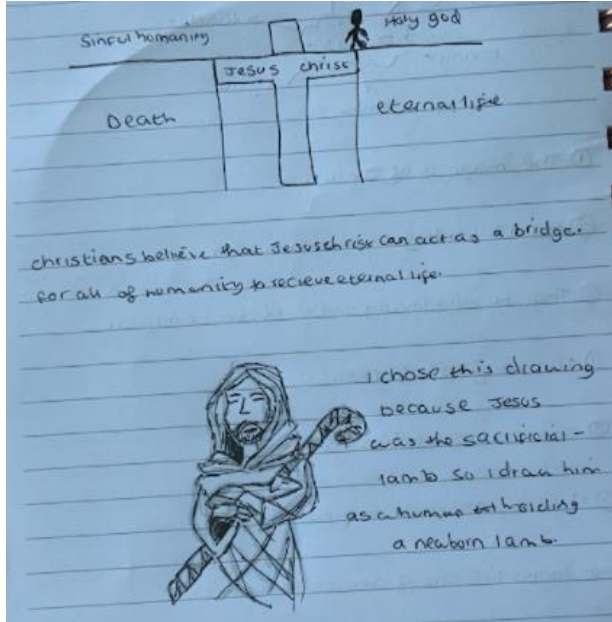 Sinful humanity
Holy god
Jesus christ
Death
eternal life
christians believe that Jesus christ can act as a bridge.
for all of humanity to recieve eternal life.
I chose this drawing
because Jesus
was the sacrificial-
lamb so I draw him
as a human holding
a newborn lamb.